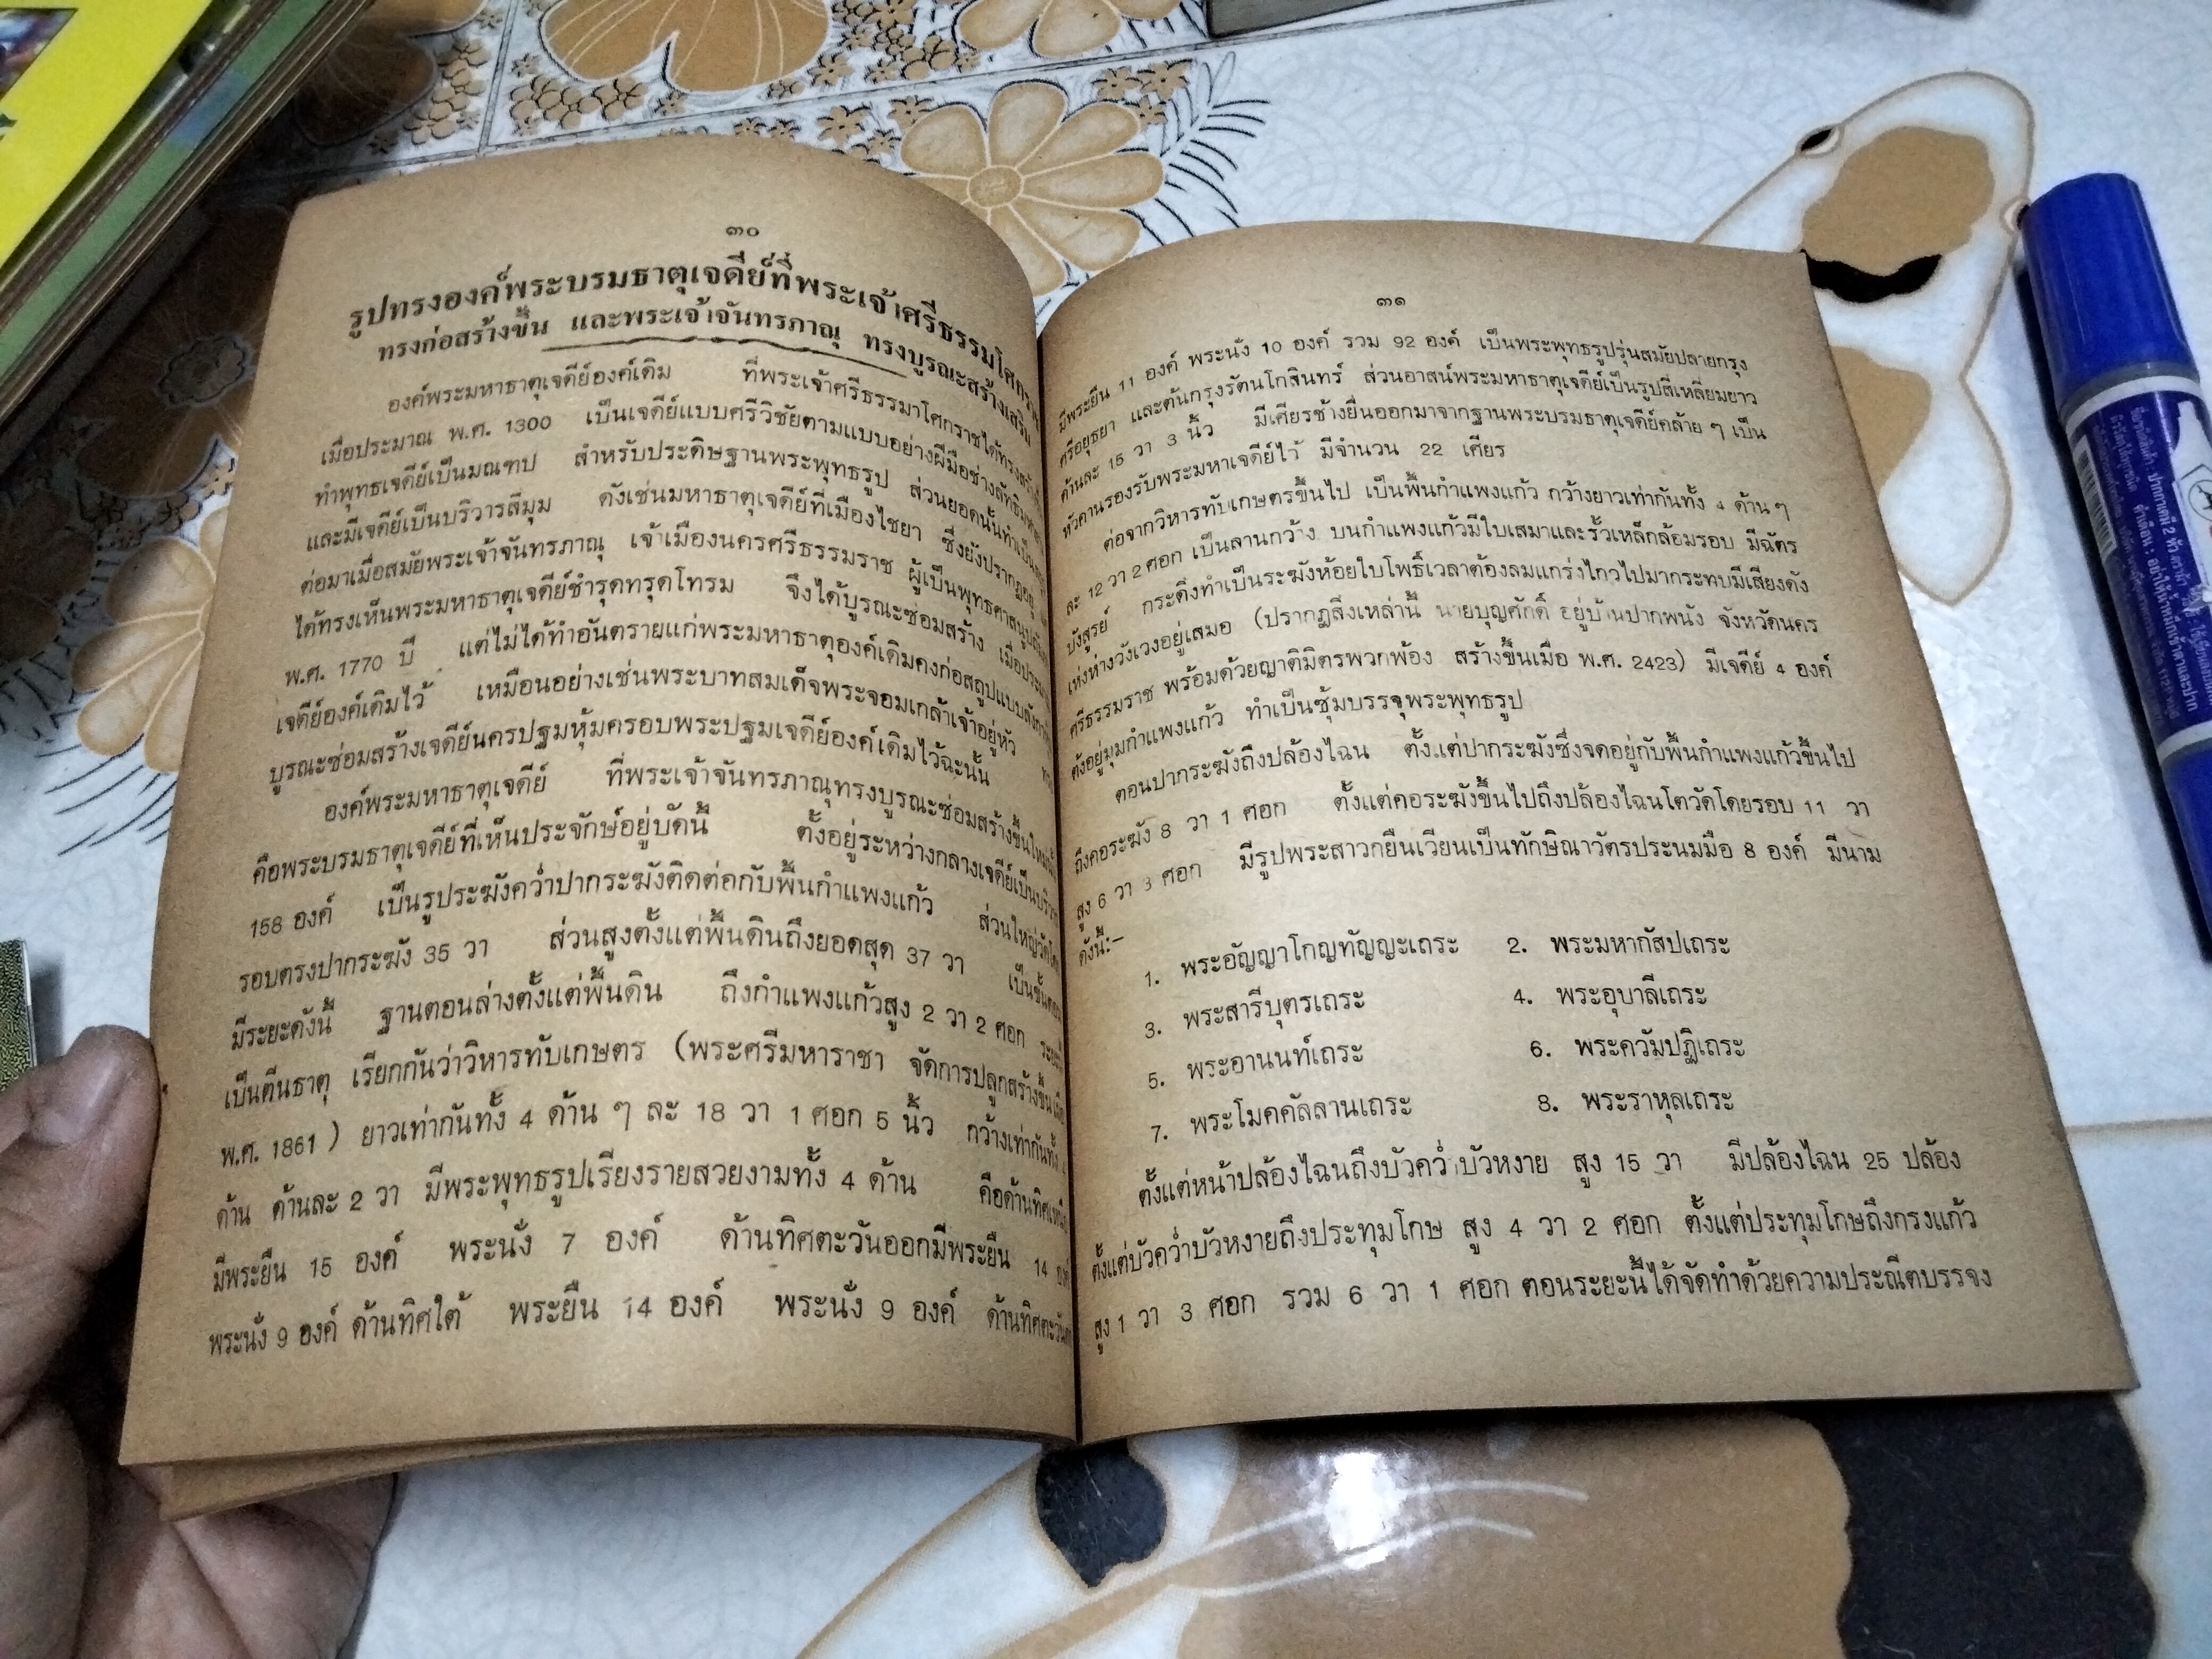 ๓๐
รูปทรงองค์พระบรมธาตุเจดีย์ที่พระเจ้าศรีธรรมโศกราช
ทรงก่อสร้างขึ้น และพระเจ้าจันทรภาณุ ทรงบูรณะสร้างเสริม
องค์พระมหาธาตุเจดีย์องค์เดิม ที่พระเจ้าศรีธรรมาโศกราชได้ทรงสร้าง
เมื่อประมาณ พ.ศ. 1300 เป็นเจดีย์แบบศรีวิชัยตามแบบอย่างฝีมือช่างลัทธิมหายาน
ทำพุทธเจดีย์เป็นมณฑป สำหรับประดิษฐานพระพุทธรูป ส่วนยอดนั้นทำเป็น
และมีเจดีย์เป็นบริวารสี่มุม ดังเช่นมหาธาตุเจดีย์ที่เมืองไชยา ซึ่งยังปรากฏอยู่
ต่อมาเมื่อสมัยพระเจ้าจันทรภาณุ เจ้าเมืองนครศรีธรรมราช ผู้เป็นพุทธศาสนูปถัมภก
ได้ทรงเห็นพระมหาธาตุเจดีย์ชำรุดทรุดโทรม จึงได้บูรณะซ่อมสร้าง เมื่อประมาณ
พ.ศ. 1770 ปี แต่ไม่ได้ทำอันตรายแก่พระมหาธาตุองค์เดิมคงก่อสถูปแบบลังกา
เจดีย์องค์เดิมไว้ เหมือนอย่างเช่นพระบาทสมเด็จพระจอมเกล้าเจ้าอยู่หัว
บูรณะซ่อมสร้างเจดีย์นครปฐมหุ้มครอบพระปฐมเจดีย์องค์เดิมไว้ฉะนั้น
องค์พระมหาธาตุเจดีย์ ที่พระเจ้าจันทรภาณุทรงบูรณะซ่อมสร้างขึ้นใหม่นั้น
คือพระบรมธาตุเจดีย์ที่เห็นประจักษ์อยู่บัดนี้ ตั้งอยู่ระหว่างกลางเจดีย์เป็นบริวาร
158 องค์ เป็นรูประฆังคว่ำปากระฆังติดต่อกับพื้นกำแพงแก้ว ส่วนใหญ่วัดโดย
รอบตรงปากระฆัง 35 วา ส่วนสูงตั้งแต่พื้นดินถึงยอดสุด 37 วา เป็นชั้นตอน
มีระยะดังนี้ ฐานตอนล่างตั้งแต่พื้นดิน ถึงกำแพงแก้วสูง 2 วา 2 ศอก ระยะนี้
เป็นตีนธาตุ เรียกกันว่าวิหารทับเกษตร (พระศรีมหาราชา จัดการปลูกสร้างขึ้นเมื่อ
พ.ศ. 1861 ) ยาวเท่ากันทั้ง 4 ด้าน ๆ ละ 18 วา 1 ศอก 5 นิ้ว กว้างเท่ากันทั้ง 4
ด้าน ด้านละ 2 วา มีพระพุทธรูปเรียงรายสวยงามทั้ง 4 ด้าน คือด้านทิศเหนือ
มีพระยืน 15 องค์ พระนั่ง 7 องค์ ด้านทิศตะวันออกมีพระยืน 14 องค์
พระนั่ง 9 องค์ ด้านทิศใต้ พระยืน 14 องค์ พระนั่ง 9 องค์ ด้านทิศตะวันตก
๓๑
มีพระยืน 11 องค์ พระนั่ง 10 องค์ รวม 92 องค์ เป็นพระพุทธรูปรุ่นสมัยปลายกรุง
ศรีอยุธยา และต้นกรุงรัตนโกสินทร์ ส่วนอาสน์พระมหาธาตุเจดีย์เป็นรูปสี่เหลี่ยมยาว
ด้านละ 15 วา 3 นิ้ว มีเศียรช้างยื่นออกมาจากฐานพระบรมธาตุเจดีย์คล้าย ๆ เป็น
หัวคานรองรับพระมหาเจดีย์ไว้ มีจำนวน 22 เศียร
ต่อจากวิหารทับเกษตรขึ้นไป เป็นพื้นกำแพงแก้ว กว้างยาวเท่ากันทั้ง 4 ด้าน ๆ
ละ 12 วา 2 ศอก เป็นลานกว้าง บนกำแพงแก้วมีใบเสมาและรั้วเหล็กล้อมรอบ มีฉัตร
บังสูรย์ กระดิ่งทำเป็นระฆังห้อยใบโพธิ์เวลาต้องลมแกร่งไกวไปมากระทบมีเสียงดัง
เห่งห่างวังเวงอยู่เสมอ (ปรากฏสิ่งเหล่านี้ นายบุญศักดิ์ อยู่บ้านปากพนัง จังหวัดนคร
ศรีธรรมราช พร้อมด้วยญาติมิตรพวกพ้อง สร้างขึ้นเมื่อ พ.ศ. 2423) มีเจดีย์ 4 องค์
ตั้งอยู่มุมกำแพงแก้ว ทำเป็นซุ้มบรรจุพระพุทธรูป
ตอนปากระฆังถึงปล้องไฉน ตั้งแต่ปากระฆังซึ่งจดอยู่กับพื้นกำแพงแก้วขึ้นไป
ถึงคอระฆัง 8 วา 1 ศอก ตั้งแต่คอระฆังขึ้นไปถึงปล้องไฉนโตวัดโดยรอบ 11 วา
สูง 6 วา 3 ศอก มีรูปพระสาวกยืนเวียนเป็นทักษิณาวัตรประนมมือ 8 องค์ มีนาม
ดังนี้:–
1. พระอัญญาโกญทัญญะเถระ 2. พระมหากัสปเถระ
3. พระสารีบุตรเถระ 4. พระอุบาลีเถระ
5. พระอานนท์เถระ 6. พระควัมปฏิเถระ
7. พระโมคคัลลานเถระ 8. พระราหุลเถระ
ตั้งแต่หน้าปล้องไฉนถึงบัวคว่ำบัวหงาย สูง 15 วา มีปล้องไฉน 25 ปล้อง
ตั้งแต่บัวคว่ำบัวหงายถึงประทุมโกษ สูง 4 วา 2 ศอก ตั้งแต่ประทุมโกษถึงกรงแก้ว
สูง 1 วา 3 ศอก รวม 6 วา 1 ศอก ตอนระยะนี้ได้จัดทำด้วยความประณีตบรรจง